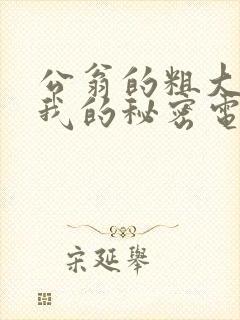 公翁的粗大
我的秘密電
宋延舉